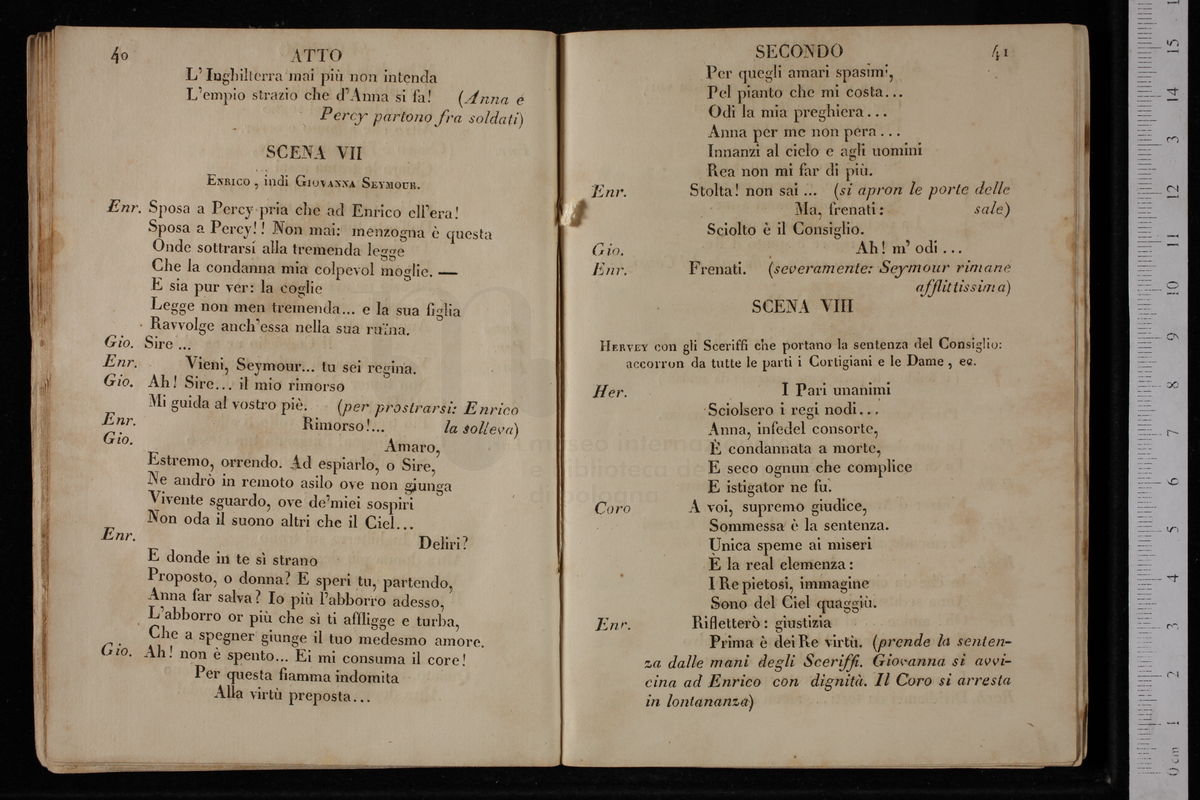 40 ATTO
L' Inghilterra mai più non intenda
L'empio strazio che d'Anna si fa! (Anna e
Percy partono fra soldati)
SCENA VII
ENRICO, indi GIOVANNA SEYMOUR.
Enr. Sposa a Percy pria che ad Enrico ell'era!
Sposa a Percy!! Non mai: menzogna è questa
Onde sottrarsi alla tremenda legge
Che la condanna mia colpevol moglie. —
E sia pur ver: la coglie
Legge non men tremenda... e la sua figlia
Ravvolge anch'essa nella sua ruïna.
Gio. Sire ...
Enr. Vieni, Seymour... tu sei regina.
Gio. Ah! Sire... il mio rimorso
Mi guida al vostro piè. (per prostrarsi: Enrico
Enr. Rimorso!... la solleva)
Gio. Amaro,
Estremo, orrendo. Ad espiarlo, o Sire,
Ne andrò in remoto asilo ove non giunga
Vivente sguardo, ove de'miei sospiri
Non oda il suono altri che il Ciel...
Enr. Deliri?
E donde in te sì strano
Proposto, o donna? E speri tu, partendo,
Anna far salva? Io più l'abborro adesso,
L'abborro or più che sì ti affligge e turba,
Che a spegner giunge il tuo medesmo amore.
Gio. Ah! non è spento... Ei mi consuma il core!
Per questa fiamma indomita
Alla virtù preposta...
SECONDO 41
Per quegli amari spasimi,
Pel pianto che mi costa...
Odi la mia preghiera...
Anna per me non pera...
Innanzi al cielo e agli uomini
Rea non mi far di più.
Enr. Stolta! non sai ... (si apron le porte delle
Ma, frenati: sale)
Sciolto è il Consiglio.
Gio. Ah! m' odi ...
Enr. Frenati. (severamente: Seymour rimane
afflittissima)
SCENA VIII
HERVEY con gli Sceriffi che portano la sentenza del Consiglio:
accorron da tutte le parti i Cortigiani e le Dame, ec.
Her. I Pari unanimi
Sciolsero i regi nodi...
Anna, infedel consorte,
È condannata a morte,
E seco ognun che complice
E istigator ne fu.
Coro A voi, supremo giudice,
Sommessa è la sentenza.
Unica speme ai miseri
È la real clemenza:
I Re pietosi, immagine
Sono del Ciel quaggiù.
Enr. Rifletterò: giustizia
Prima è dei Re virtù. (prende la senten-
za dalle mani degli Sceriffi. Giovanna si avvi-
cina ad Enrico con dignità. Il Coro si arresta
in lontananza)
museo internaz
e biblioteca de
di bologna
0 cm 1 2 3 4 5 6 7 8 9 10 11 12 13 14 15